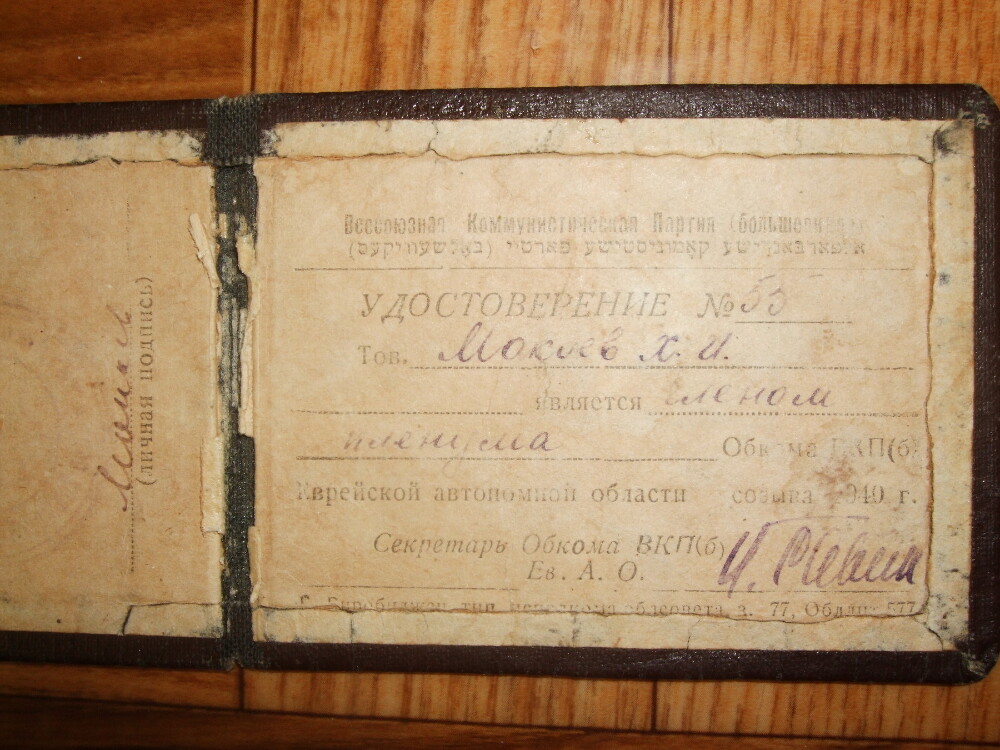 (личная подпись)
Всесоюзная Коммунистическая Партия (большевиков
אלפארבאנדישע קאמוניסטישע פארטיי (באלשעוויקעס)
УДОСТОВЕРЕНИЕ № 55
Тов. Мокаев Х. И.
является членом
пленума Обкома ВКП(б)
Еврейской автономной области созыва 1940 г.
Секретарь Обкома ВКП(б)
Ев. А. О.
г. Биробиджан, тип. облсовета, з. 77, Облли 577